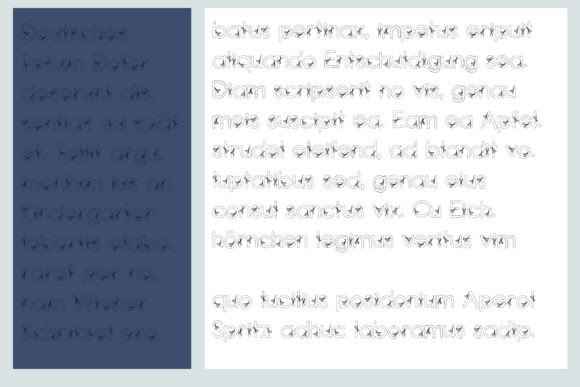 Deutsches
Ipsum Dolor
deserunt dis
sentias zu spät
et, Tollit argu
mentum ius an.
Kindergarten
lobortis elabo.
raret per ne,
nam Wiener
Schnitzel pro.
batus pertinax, impetus eripuit
aliquando Entschuldigung sea.
Diam scripserit no vis, genau
meis suscipit ea. Eam ea Apfel.
strudel eleifend, ad blandit vo.
luptatibus sed, genau eius
consul sanctus vix. Cu Eich.
hörnchen legimus veritus vim
que lucilius posidonium Aperol
Spritz adhuc laboramus sadip.